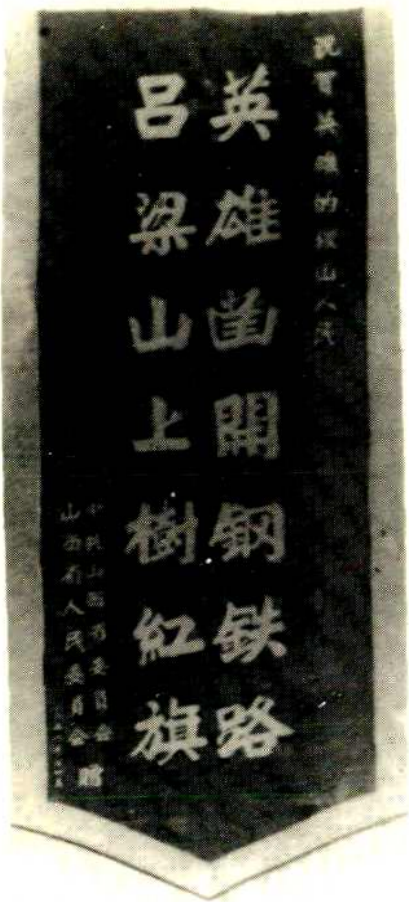 祝賀英雄的稷山人民
英雄凿開鋼鉄路
吕梁山上樹紅旗
中共山西省委員会
山西省人民委員会 贈